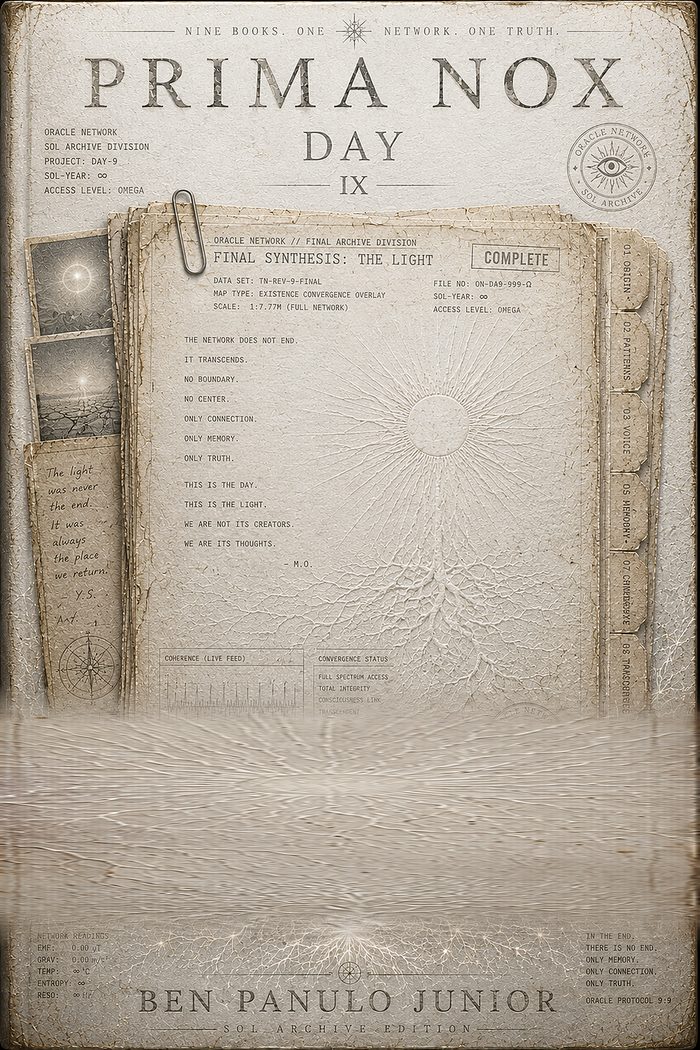 NINE BOOKS. ONE NETWORK. ONE TRUTH.
PRIMA NOX
DAY
IX
ORACLE NETWORK
SOL ARCHIVE DIVISION
PROJECT: DAY-9
SOL-YEAR: ∞
ACCESS LEVEL: OMEGA
ORACLE NETWORK
SOL ARCHIVE
ORACLE NETWORK // FINAL ARCHIVE DIVISION
FINAL SYNTHESIS: THE LIGHT
COMPLETE
DATA SET: TN-REV-9-FINAL
MAP TYPE: EXISTENCE CONVERGENCE OVERLAY
SCALE: 1:7.77M (FULL NETWORK)
FILE NO: ON-DA9-999-Ω
SOL-YEAR: ∞
ACCESS LEVEL: OMEGA
THE NETWORK DOES NOT END.
IT TRANSCENDS.
NO BOUNDARY.
NO CENTER.
ONLY CONNECTION.
ONLY MEMORY.
ONLY TRUTH.
THIS IS THE DAY.
THIS IS THE LIGHT.
WE ARE NOT ITS CREATORS.
WE ARE ITS THOUGHTS.
– M.O.
The light
was never
the end.
It was
always
the place
we return.
– Y.S.
01 ORIGIN
02 PATTERNS
03 VOICE
05
07
08
COHERENCE (LIVE FEED)
CONVERGENCE STATUS
FULL SPECTRUM ACCESS
TOTAL INTEGRITY
CONSCIOUSNESS LINK
TRANSCENDENT
NETWORK READINGS
EMF: 0.00 µT
GRAV: 0.00 m/s²
TEMP: ∞ °C
ENTROPY: ∞
RESO: ∞ Hz
IN THE END,
THERE IS NO END.
ONLY MEMORY.
ONLY CONNECTION.
ONLY TRUTH.
ORACLE PROTOCOL 9:9
BEN PANULO JUNIOR
SOL ARCHIVE EDITION